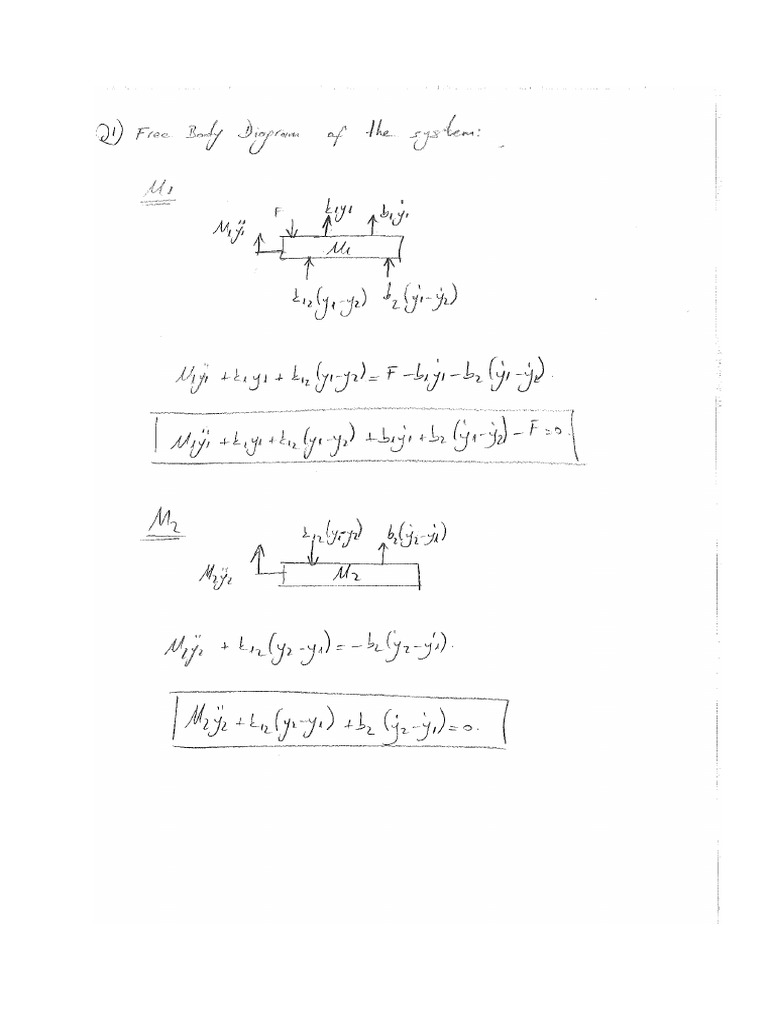 Q1) Free Body Diagram of the system:
M1
F k1y1 b1ẏ1
M1ÿ1
M1
k12(y1-y2) b2(ẏ1-ẏ2)
M1ÿ1 + k1y1 + k12(y1-y2) = F - b1ẏ1 - b2(ẏ1-ẏ2).
M1ÿ1 + k1y1 + k12(y1-y2) + b1ẏ1 + b2(ẏ1-ẏ2) - F = 0.
M2
k12(y1-y2) b2(ẏ2-ẏ1)
M2ÿ2 M2
M2ÿ2 + k12(y2-y1) = -b2(ẏ2-ẏ1).
M2ÿ2 + k12(y2-y1) + b2(ẏ2-ẏ1) = 0.